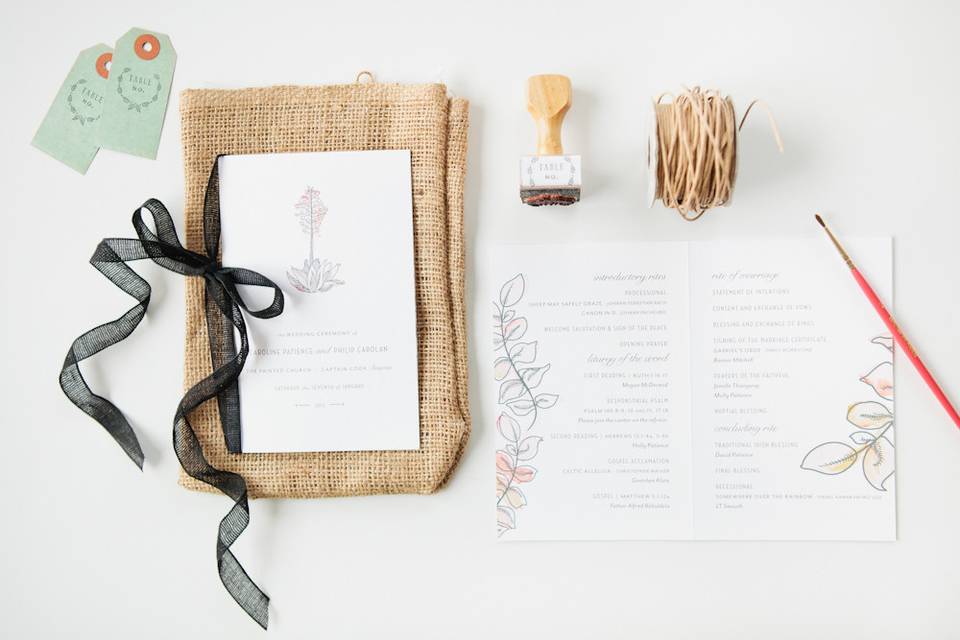 TABLE
NO.
TABLE
NO.
THE WEDDING CEREMONY of
CAROLINE PATIENCE and PHILIP CAROLAN
THE PAINTED CHURCH · CAPTAIN COOK, Hawaii
SATURDAY, the SEVENTH of JANUARY
2012
TABLE
NO.
introductory rites
PROCESSIONAL
SHEEP MAY SAFELY GRAZE, JOHANN SEBASTIAN BACH
CANON IN D, JOHANN PACHELBEL
WELCOME SALUTATION & SIGN OF THE PEACE
OPENING PRAYER
liturgy of the word
FIRST READING |
Megan McDermid
RESPONSORIAL PSALM
PSALM
Please join the cantor in the refrain.
SECOND READING | HEBREWS
Holly Patience
GOSPEL ACCLAMATION
CELTIC ALLELUIA
GOSPEL | MATTHEW 5:1-12A
Father Alfred
rite of marriage
STATEMENT OF INTENTIONS
CONSENT AND EXCHANGE OF VOWS
BLESSING AND EXCHANGE OF RINGS
SIGNING OF THE MARRIAGE CERTIFICATE
GABRIEL'S OBOE, ENNIO MORRICONE
Bonnie Mitchell
PRAYERS OF THE FAITHFUL
Jenelle
Molly Patience
NUPTIAL BLESSING
concluding rite
TRADITIONAL IRISH BLESSING
David Patience
FINAL BLESSING
RECESSIONAL
SOMEWHERE OVER THE RAINBOW
LT Smooth